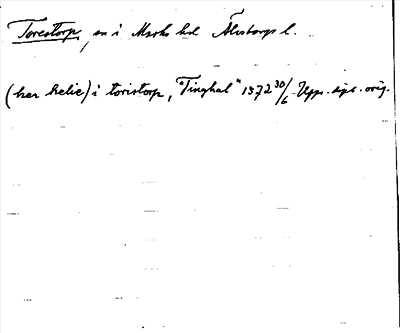 Torestorp, sn i Marks hd Älvsborgs l.
(her helie) i toristorp, "Tinghal" 1372 30/6 Upps. sigs. orig.